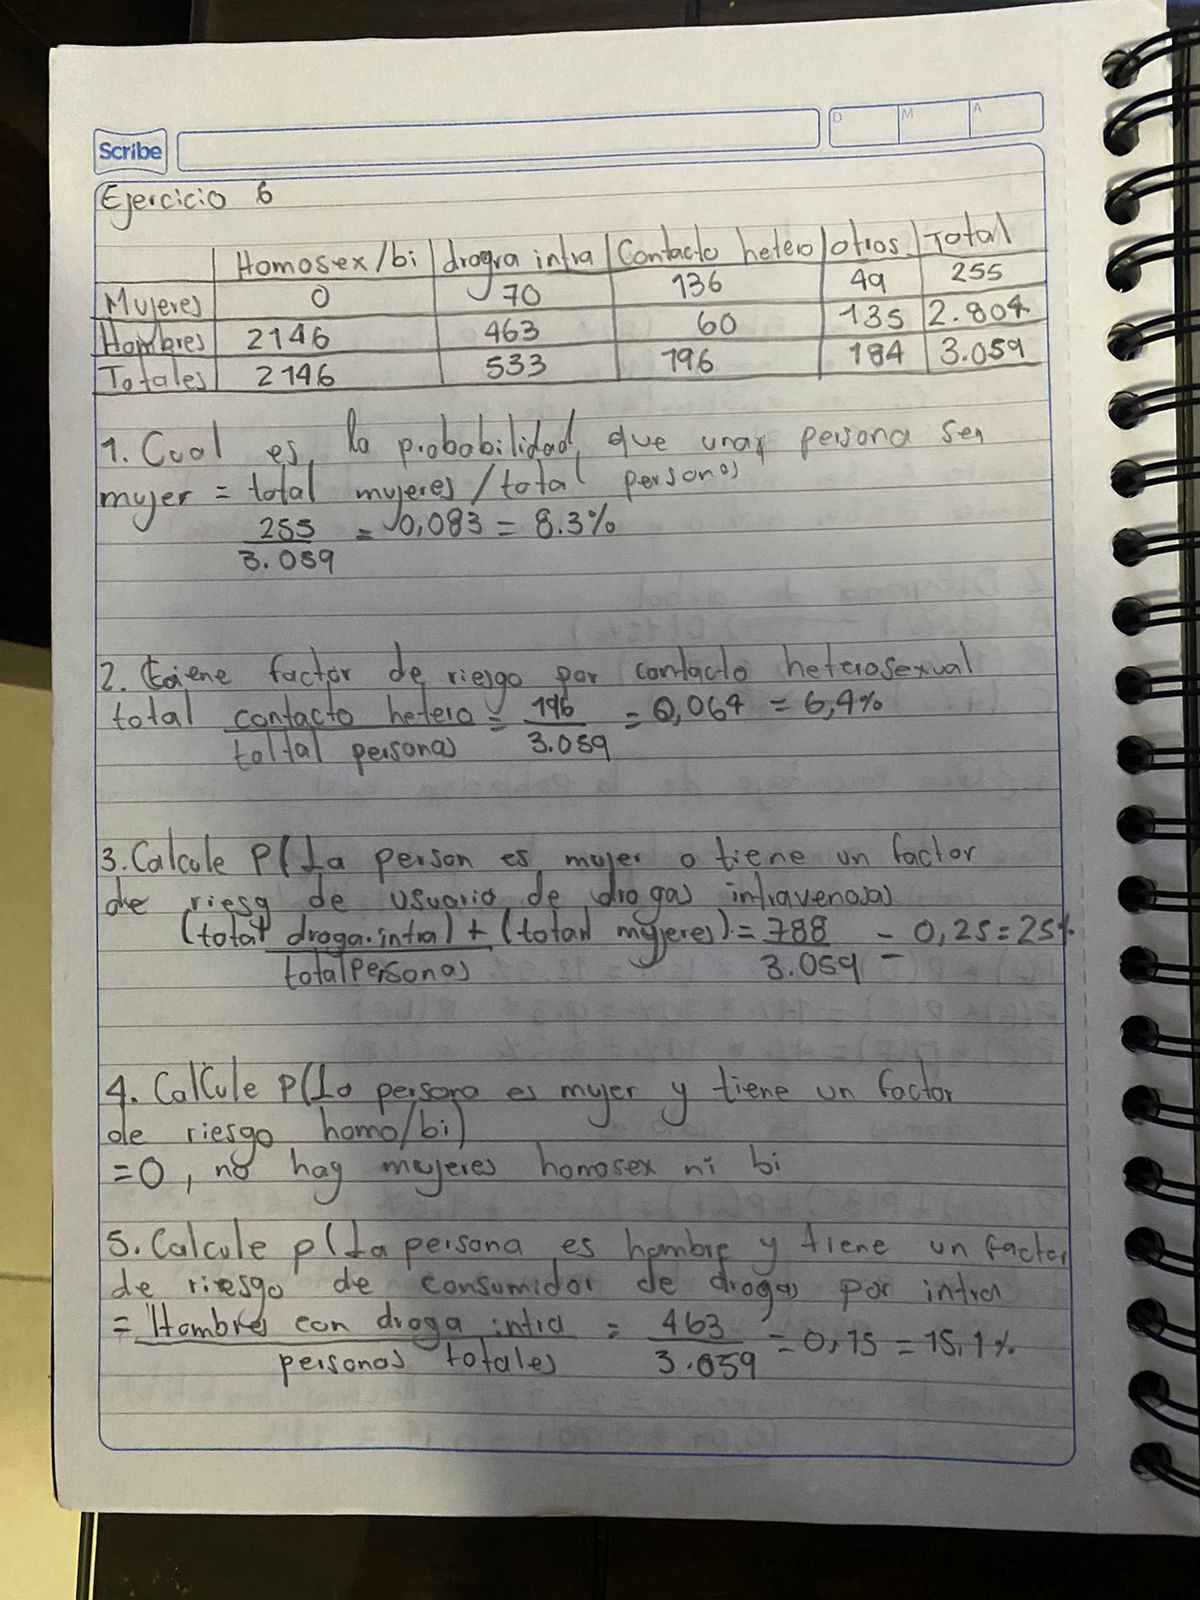 Scribe
D M A
Ejercicio 6
Homosex/bi drogra intra Contacto hetero otros Total
Mujeres 0 70 136 49 255
Hombres 2146 463 60 135 2.804
Totales 2146 533 196 184 3.059
1. Cual es la probabilidad, que una persona sea
mujer = total mujeres/total personas
255
= 0,083 = 8.3%
3.059
2. tiene factor de riesgo por contacto heterosexual
total contacto hetero = 196 = 0,064 = 6,4%
toltal personas 3.059
3. Calcule P(La person es mujer o tiene un factor
de riesg de usuario de drogas intravenosas
(total droga.intra) + (total mujeres).= 788 = 0,25=25%
total Personas 3.059
4. Calcule P(La persona es mujer y tiene un factor
de riesgo homo/bi)
=0, no hay mujeres homosex ni bi
5. Calcule p(La persona es hombre y tiene un factor
de riesgo de consumidor de drogas por intra
= Hombres con droga intra = 463 = 0,15 = 15,1%
personas totales 3.059